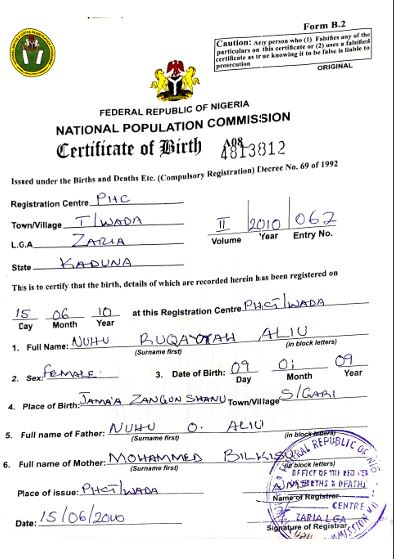 Form B.2
Caution: Any person who (1) Falsifies any of the
particulars on this certificate or (2) uses a falsified
certificate as true knowing it to be false is liable to
prosecution
ORIGINAL
FEDERAL REPUBLIC OF NIGERIA
NATIONAL POPULATION COMMISSION
Certificate of Birth A08 4813812
Issued under the Births and Deaths Etc. (Compulsory Registration) Decree No. 69 of 1992
Registration Centre PHC
Town/Village T/WADA
L.G.A ZARIA
State KADUNA
II 2010 062
Volume Year Entry No.
This is to certify that the birth, details of which are recorded herein has been registered on
15 06 10 at this Registration Centre PHCT/WADA
Day Month Year
1. Full Name: NUHU RUQAYYAH ALIU
(Surname first) (in block letters)
2. Sex: female 3. Date of Birth: 09 01 09
Day Month Year
4. Place of Birth: JAMA'A ZANGON SHANU Town/Village S/GARI
5. Full name of Father: NUHU O. ALIU
(Surname first) (in block letters)
6. Full name of Mother: MOHAMMED BILKISU
(Surname first) (in block letters)
Place of issue: PHCT/WADA
Name of Registrar
Date: 15/06/2010
Signature of Registrar
FEDERAL REPUBLIC OF NIG
OFFICE OF THE
BIRTHS & DEATHS
CENTRE
ZARIA LGA